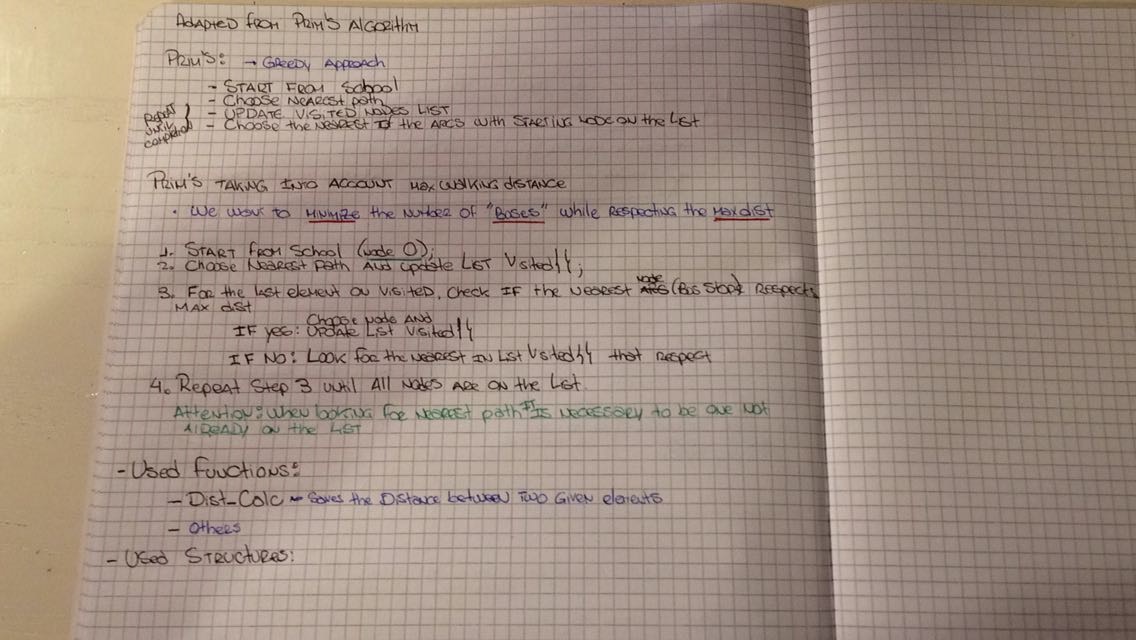 ADAPTED from PRIM'S ALGORITHM
PRIM'S: → GREEDY APPROACH
- START FROM School
- Choose NEAREST path
- UPDATE VISITED NODES LIST
- Choose the NEAREST of the ARCS with STARTING NODE ON the LIST
REPEAT
UNTIL
COMPLETION
PRIM'S TAKING INTO ACCOUNT MAX WALKING DISTANCE
• We want to MINIMIZE the NUMBER of "Bases" while RESPECTING the MAX dist
1. START from School (node 0);
2. Choose NEAREST Path AND Update LIST Visited{};
3. For the last element on VISITED, check IF the NEAREST NODE (Bus Stop) RESPECTS
MAX dist
IF yes: Choose Node AND UPDATE LIST VISITED{}
IF NO: Look for the NEAREST IN LIST Visited{} that RESPECT
4. Repeat Step 3 until All Nodes ARE on the List
Attention: When looking for NEAREST path IS NECESSARY to be one NOT
AlREADY ON the LIST
- Used functions:
- Dist_Calc Saves the Distance between Two Given elements
- Others
- Used STRUCTURES: